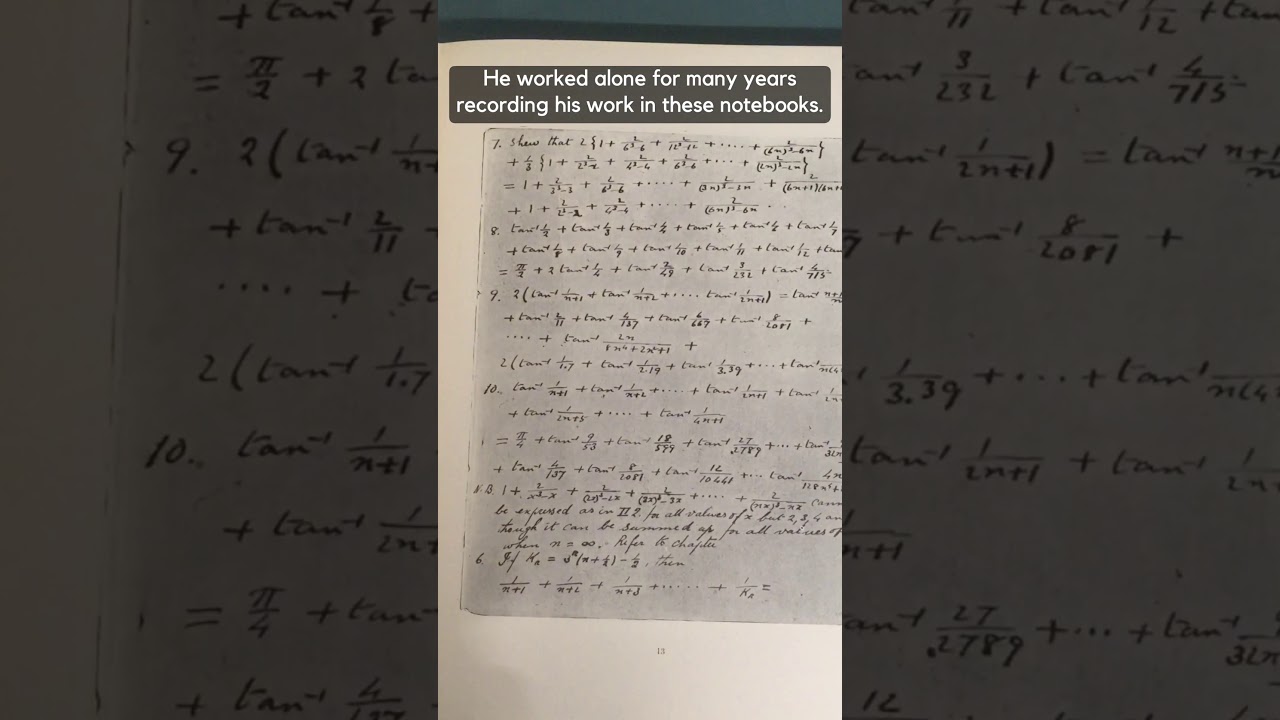 He worked alone for many years
recording his work in these notebooks.
7. Shew that 2{1 + 2/(6³-6) + 2/(12³-12) + ..... + 2/((6n)³-6n)}
+ 1/3 {1 + 2/(2³-2) + 2/(4³-4) + 2/(6³-6) + ... + 2/((2n)³-2n)}
= 1 + 2/(3³-3) + 2/(6³-6) + ..... + 2/((3n)³-3n) + 2/((6n+1)(6n+
+ 1 + 2/(2³-2) + 2/(4³-4) + ..... + 2/((6n)³-6n) ..
8. tan⁻¹ 1/2 + tan⁻¹ 1/3 + tan⁻¹ 1/4 + tan⁻¹ 1/5 + tan⁻¹ 1/6 + tan⁻¹ 1/7
+ tan⁻¹ 1/8 + tan⁻¹ 1/9 + tan⁻¹ 1/10 + tan⁻¹ 1/11 + tan⁻¹ 1/12 + tan
= π/2 + 2 tan⁻¹ 1/4 + tan⁻¹ 2/49 + tan⁻¹ 3/232 + tan⁻¹ 4/715
9. 2(tan⁻¹ 1/(n+1) + tan⁻¹ 1/(n+2) + .... tan⁻¹ 1/(2n+1)) = tan⁻¹ (n+1)/n
+ tan⁻¹ 2/11 + tan⁻¹ 4/137 + tan⁻¹ 6/667 + tan⁻¹ 8/2081 +
.... + tan⁻¹ 2n/(8n⁴+2n²+1) +
2(tan⁻¹ 1/1.7 + tan⁻¹ 1/2.19 + tan⁻¹ 1/3.39 + ... + tan⁻¹ 1/n(4
10. tan⁻¹ 1/(n+1) + tan⁻¹ 1/(n+2) + .... + tan⁻¹ 1/(2n+1) + tan⁻¹ 1/2n
+ tan⁻¹ 1/(2n+5) + .... + tan⁻¹ 1/(4n+1)
= π/4 + tan⁻¹ 9/53 + tan⁻¹ 18/599 + tan⁻¹ 27/2789 + ... + tan⁻¹ /32n
+ tan⁻¹ 4/137 + tan⁻¹ 8/2081 + tan⁻¹ 12/10441 + ... tan⁻¹ 4n/128n⁴+
N.B. 1 + 2/(x³-x) + 2/((2x)³-2x) + 2/((3x)³-3x) + ..... + 2/((nx)³-nx) cann
be expressed as in II 2. for all values of x but 2, 3, 4 an
though it can be summed up for all values of
when n = ∞. Refer to chapter
6. If Kₙ = 3ⁿ(n+1/2) - 1/2, then
1/(n+1) + 1/(n+2) + 1/(n+3) + ..... + 1/Kₙ =
13